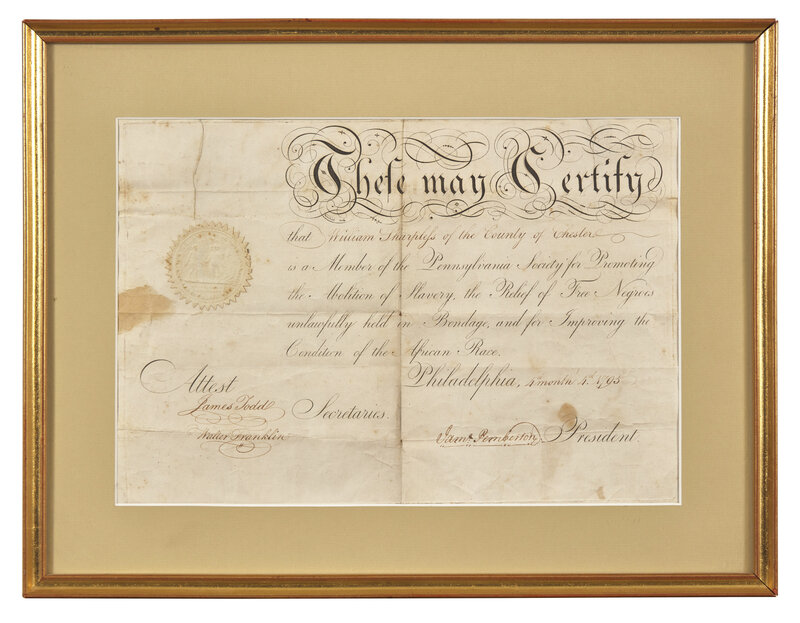 Theſe may Certify
that William Sharpleſs of the County of Chester
is a Member of the Pennsylvania Society for Promoting
the Abolition of Slavery, the Relief of Free Negroes
unlawfully held in Bondage, and for Improving the
Condition of the African Race.
Philadelphia, 4th month 4th 1795
Attest
James Todd
Walter Franklin
Secretaries.
Jams. Pemberton President.